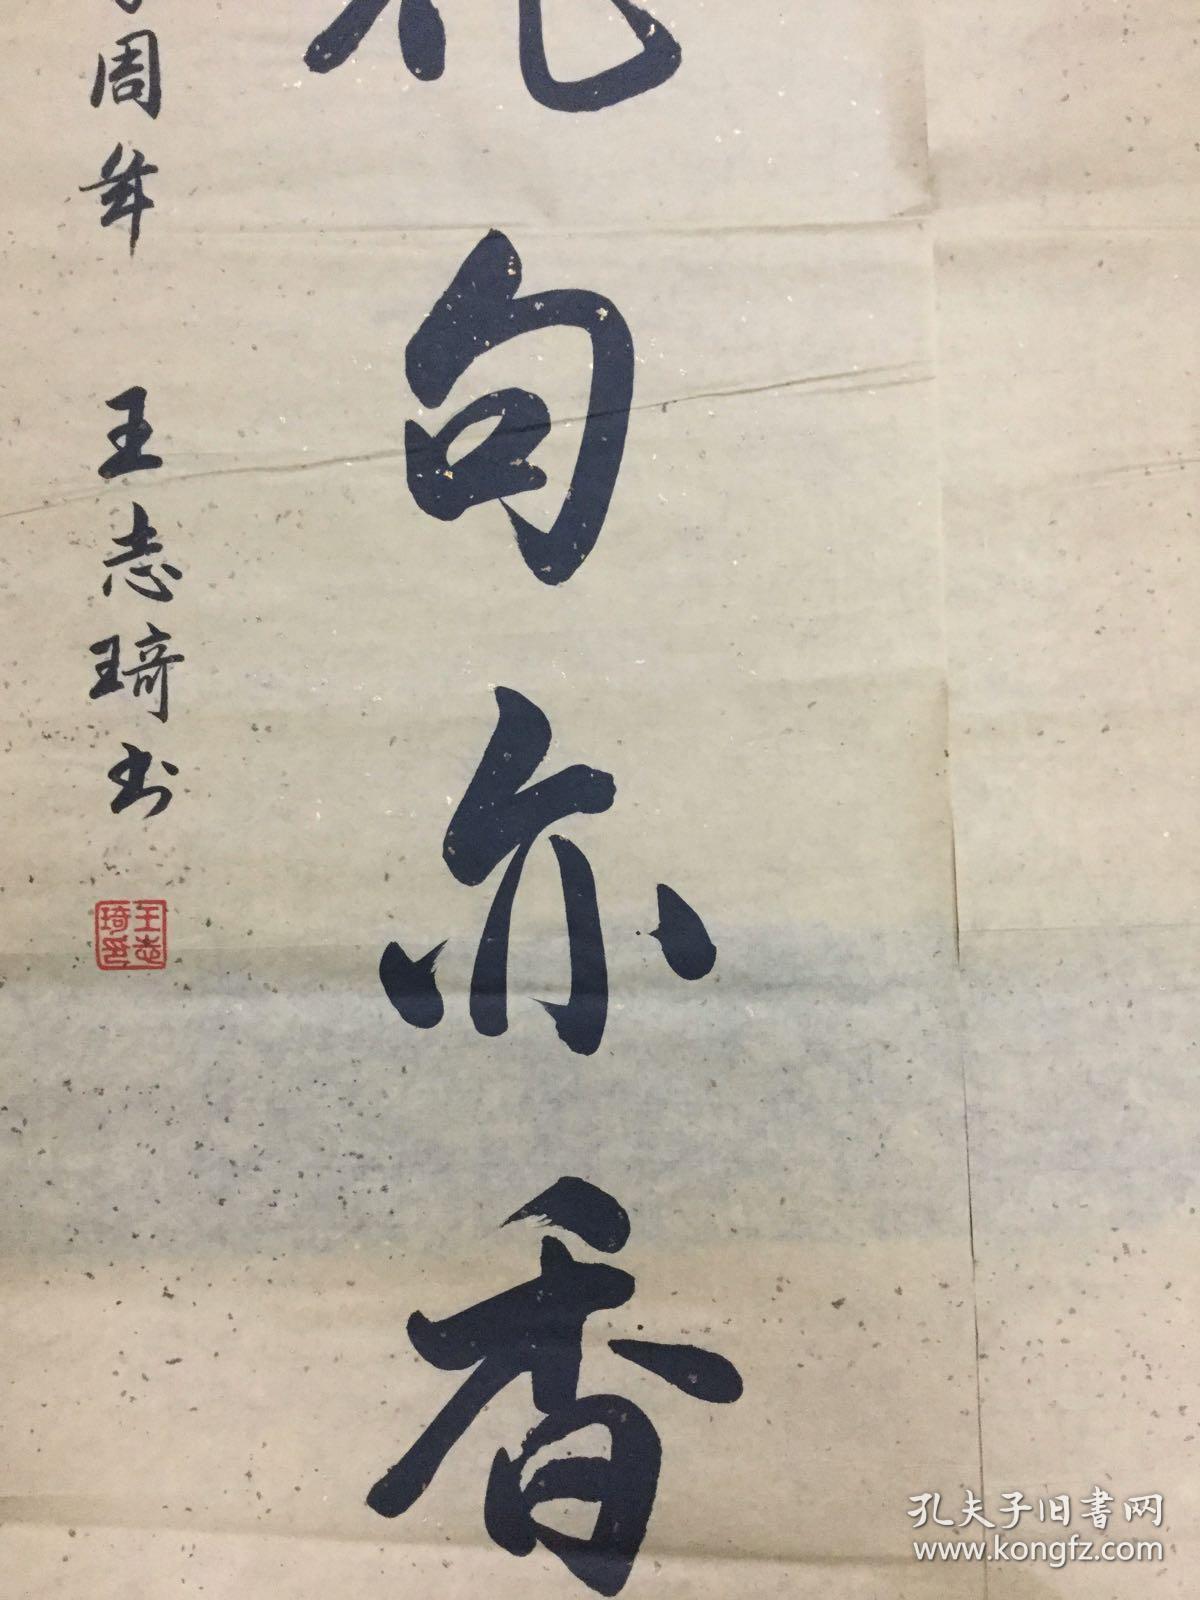 句亦香
周年 王志琦书
王志琦印
孔夫子旧书网
www.kongfz.com